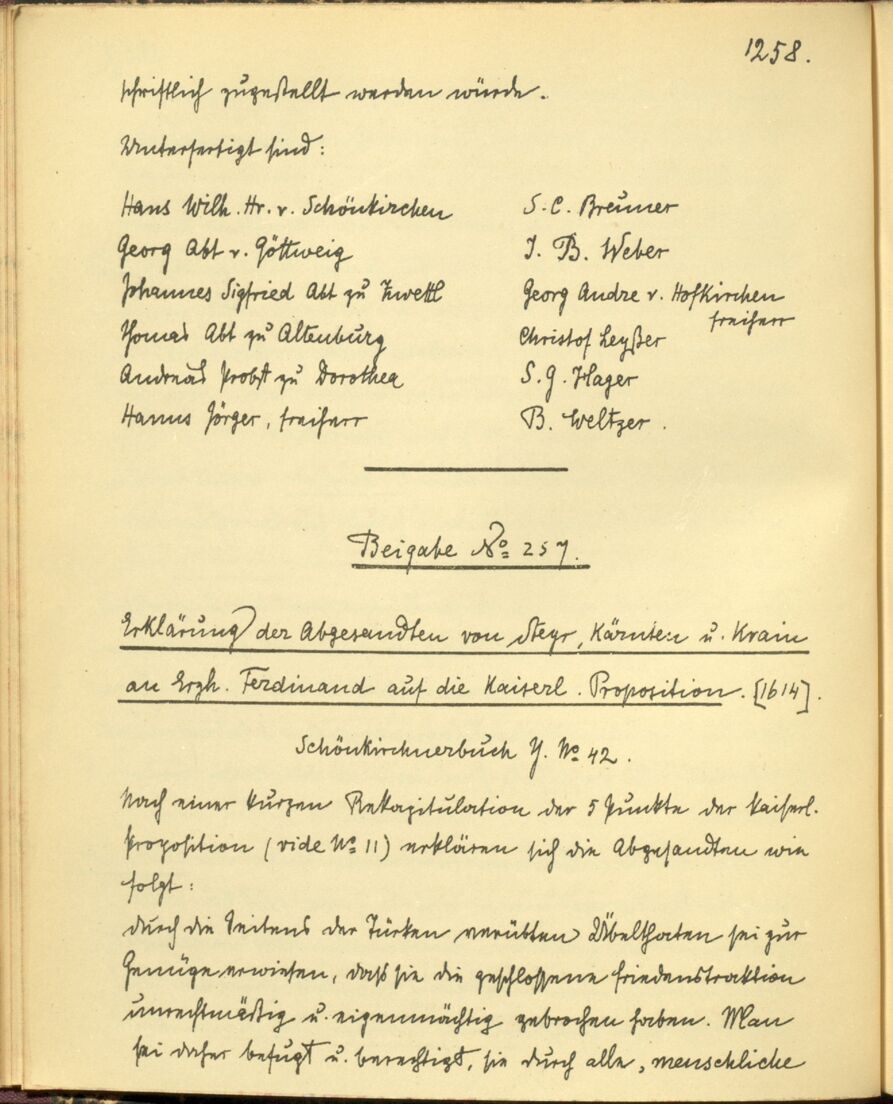 1258.
schriftlich zugestellt werden würde.
Unterfertigt sind:
Hans Wilh. Hr. v. Schönkirchen
Georg Abt v. Göttweig
Johannes Sigfried Abt zu Zwettl
Thomas Abt zu Altenburg
Andreas Probst zu Dorothea
Hanns Jörger, freiherr
S. C. Breuner
J. B. Weber
Georg Andre v. Hofkirchen
freiherr
Christof Leyßer
S. G. Hager
B. Weltzer.
Beigabe No 257.
Erklärung der Abgesandten von Steyr, Kärnten u. Krain
an Erzh. Ferdinand auf die Kaiserl. Proposition. [1614].
Schönkirchnerbuch Y. No 42.
Nach einer kurzen Rekapitulation der 5 Punkte der kaiserl.
Proposition (vide No 11) erklären sich die Abgesandten wie
folgt:
durch die Seitens der Türken verübten Übelthaten sei zur
Genüge erwiesen, dass sie die geschlossene friedenstraktion
unrechtmäßig u. eigenmächtig gebrochen haben. Man
sei daher befugt u. berechtigt, sie durch alle, menschliche